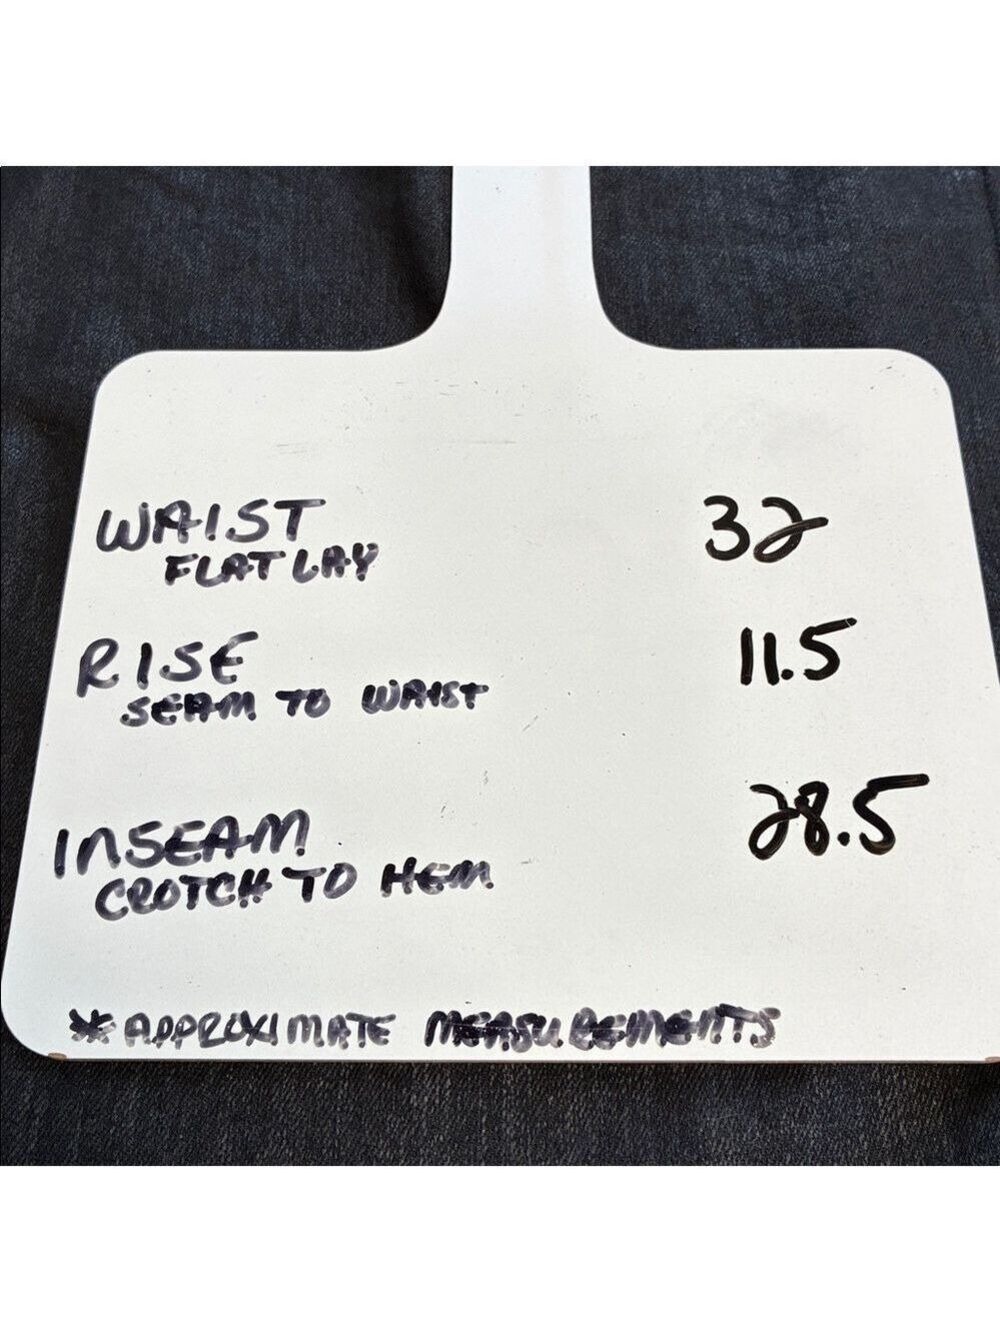 WAIST 32
FLAT LAY
RISE 11.5
SEAM TO WAIST
INSEAM 28.5
CROTCH TO HEM
* APPROXIMATE MEASUREMENTS